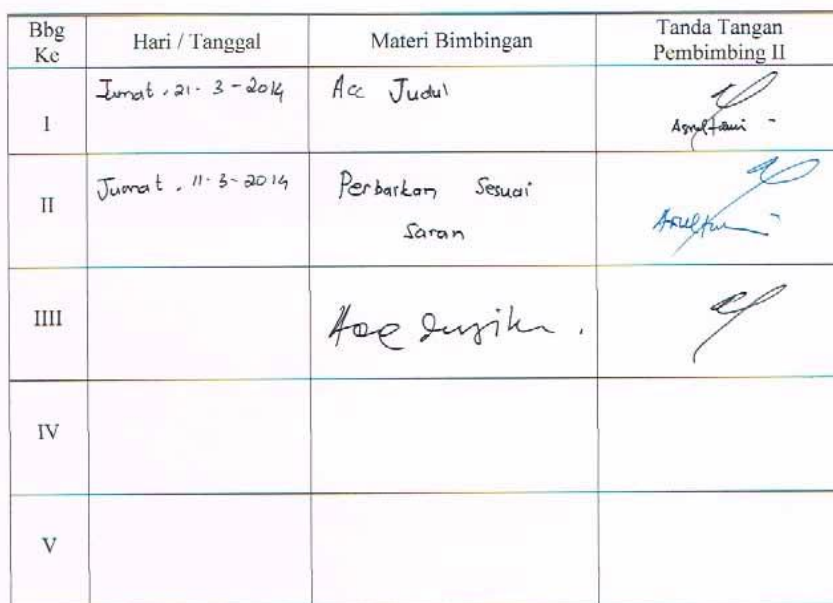 Bbg Hari / Tanggal Materi Bimbingan Tanda Tangan
Ke Pembimbing II
I Jumat, 21-3-2014 Acc Judul
II Jumat, 11-3-2014 Perbaikan Sesuai
Saran
IIII Acc
IV
V